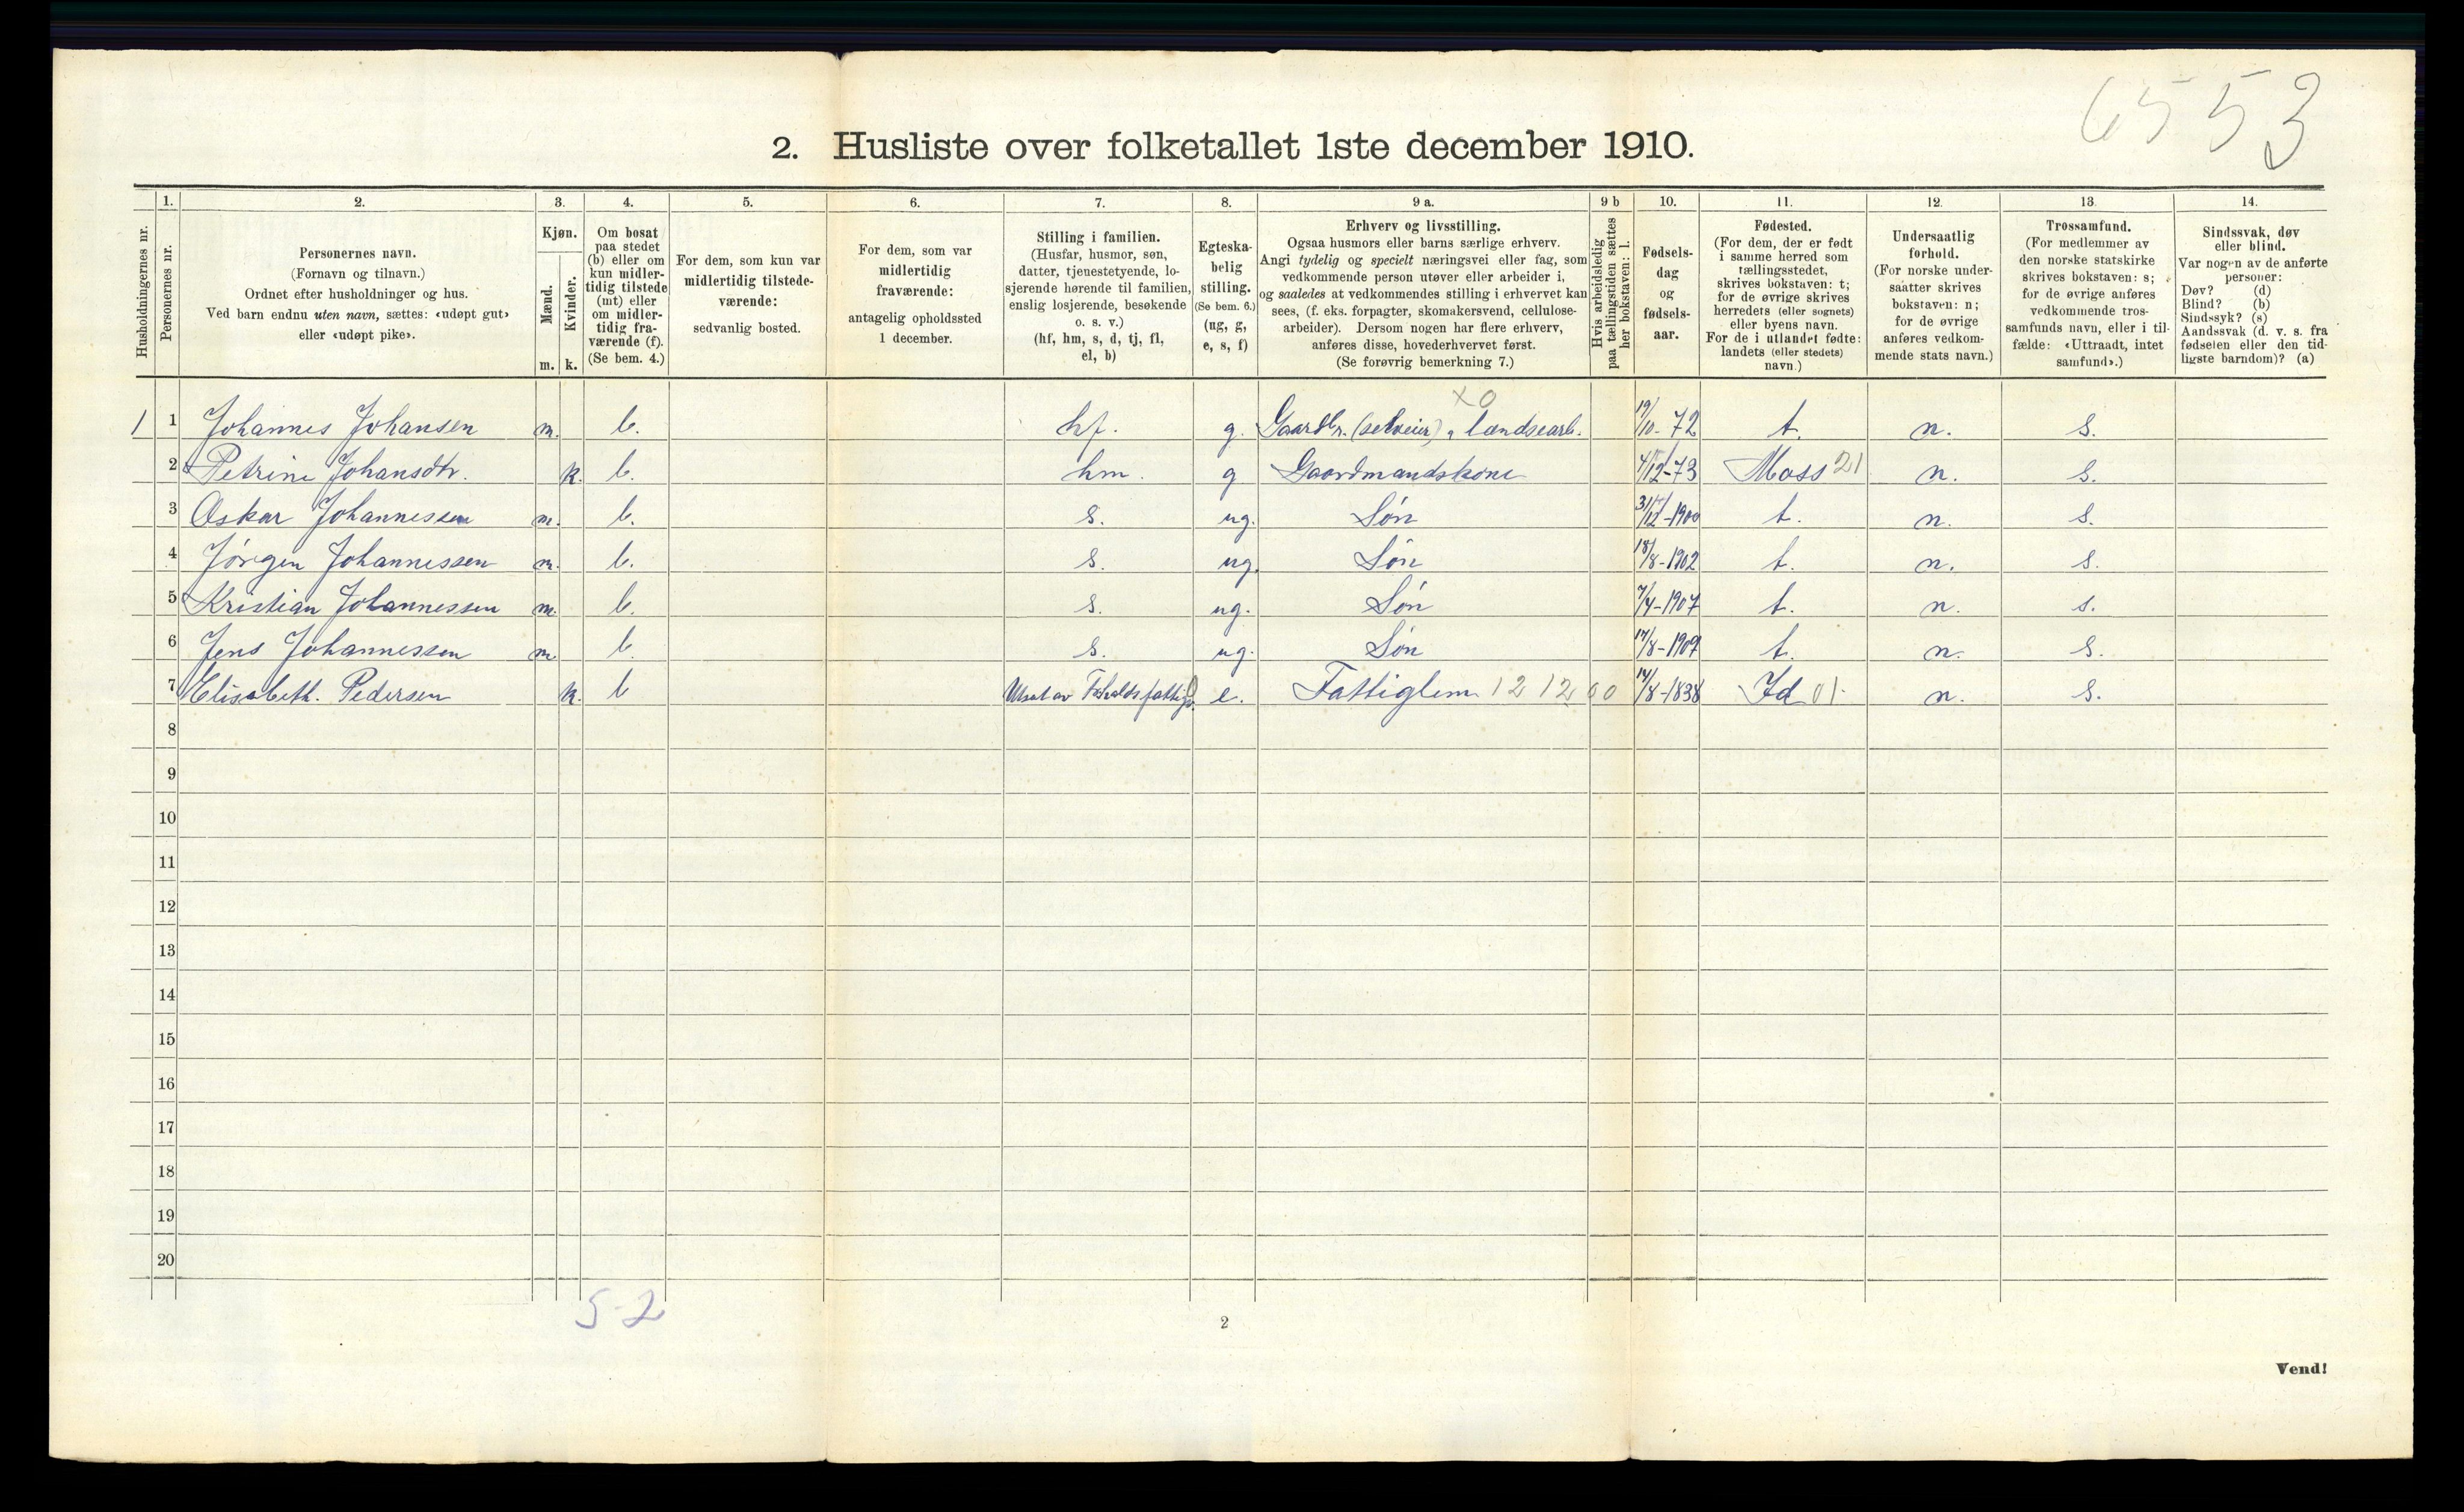 6553
2. Husliste over folketallet 1ste december 1910.
1. 2. 3. 4. 5. 6. 7. 8. 9 a. 9 b 10. 11. 12. 13. 14.
Husholdningernes nr.
Personernes nr.
Personernes navn.
(Fornavn og tilnavn.)
Ordnet efter husholdninger og hus.
Ved barn endnu uten navn, sættes: «udøpt gut»
eller «udøpt pike».
Kjøn.
Mænd.
Kvinder.
m. k.
Om bosat
paa stedet
(b) eller om
kun midler-
tidig tilstede
(mt) eller
om midler-
tidig fra-
værende (f).
(Se bem. 4.)
For dem, som kun var
midlertidig tilstede-
værende:
sedvanlig bosted.
For dem, som var
midlertidig
fraværende:
antagelig opholdssted
1 december.
Stilling i familien.
(Husfar, husmor, søn,
datter, tjenestetyende, lo-
sjerende hørende til familien,
enslig losjerende, besøkende
o. s. v.)
(hf, hm, s, d, tj, fl,
el, b)
Egteska-
belig
stilling.
(Se bem. 6.)
(ug, g,
e, s, f)
Erhverv og livsstilling.
Ogsaa husmors eller barns særlige erhverv.
Angi tydelig og specielt næringsvei eller fag, som
vedkommende person utøver eller arbeider i,
og saaledes at vedkommendes stilling i erhvervet kan
sees, (f. eks. forpagter, skomakersvend, cellulose-
arbeider). Dersom nogen har flere erhverv,
anføres disse, hovederhvervet først.
(Se forøvrig bemerkning 7.)
Hvis arbeidsledig
paa tællingstiden sættes
her bokstaven: l.
Fødsels-
dag
og
fødsels-
aar.
Fødested.
(For dem, der er født
i samme herred som
tællingsstedet,
skrives bokstaven: t;
for de øvrige skrives
herredets (eller sognets)
eller byens navn.
For de i utlandet fødte:
landets (eller stedets)
navn.)
Undersaatlig
forhold.
(For norske under-
saatter skrives
bokstaven: n;
for de øvrige
anføres vedkom-
mende stats navn.)
Trossamfund.
(For medlemmer av
den norske statskirke
skrives bokstaven: s;
for de øvrige anføres
vedkommende tros-
samfunds navn, eller i til-
fælde: «Uttraadt, intet
samfund».)
Sindssvak, døv
eller blind.
Var nogen av de anførte
personer:
Døv? (d)
Blind? (b)
Sindssyk? (s)
Aandssvak (d. v. s. fra
fødselen eller den tid-
ligste barndom)? (a)
X0
1 1 Johannes Johansen m. b. hf. g. Gaardbr. (selveier), landsearb. 19/10-72 t. n. s.
2 Petrine Johansdtr. k. b. hm. g Gaardmandskone 4/12-73 Moss 21 n. s.
3 Oskar Johannessen m. b. s. ug. Søn 31/12-1900 t. n. s.
4 Jørgen Johannessen m. b. s. ug. Søn 18/8-1902 t. n. s.
5 Kristian Johannessen m. b. s. ug. Søn 7/4-1907 t. n. s.
6 Jens Johannessen m b. s. ug. Søn 17/8-1909 t. n. s.
7 Elisabeth. Pedersen k. b e. Fattiglem 1212 00 14/8-1838 Id 01 n. s.
8
9
10
11
12
13
14
15
16
17
18
19
20
5-2
2
Vend!